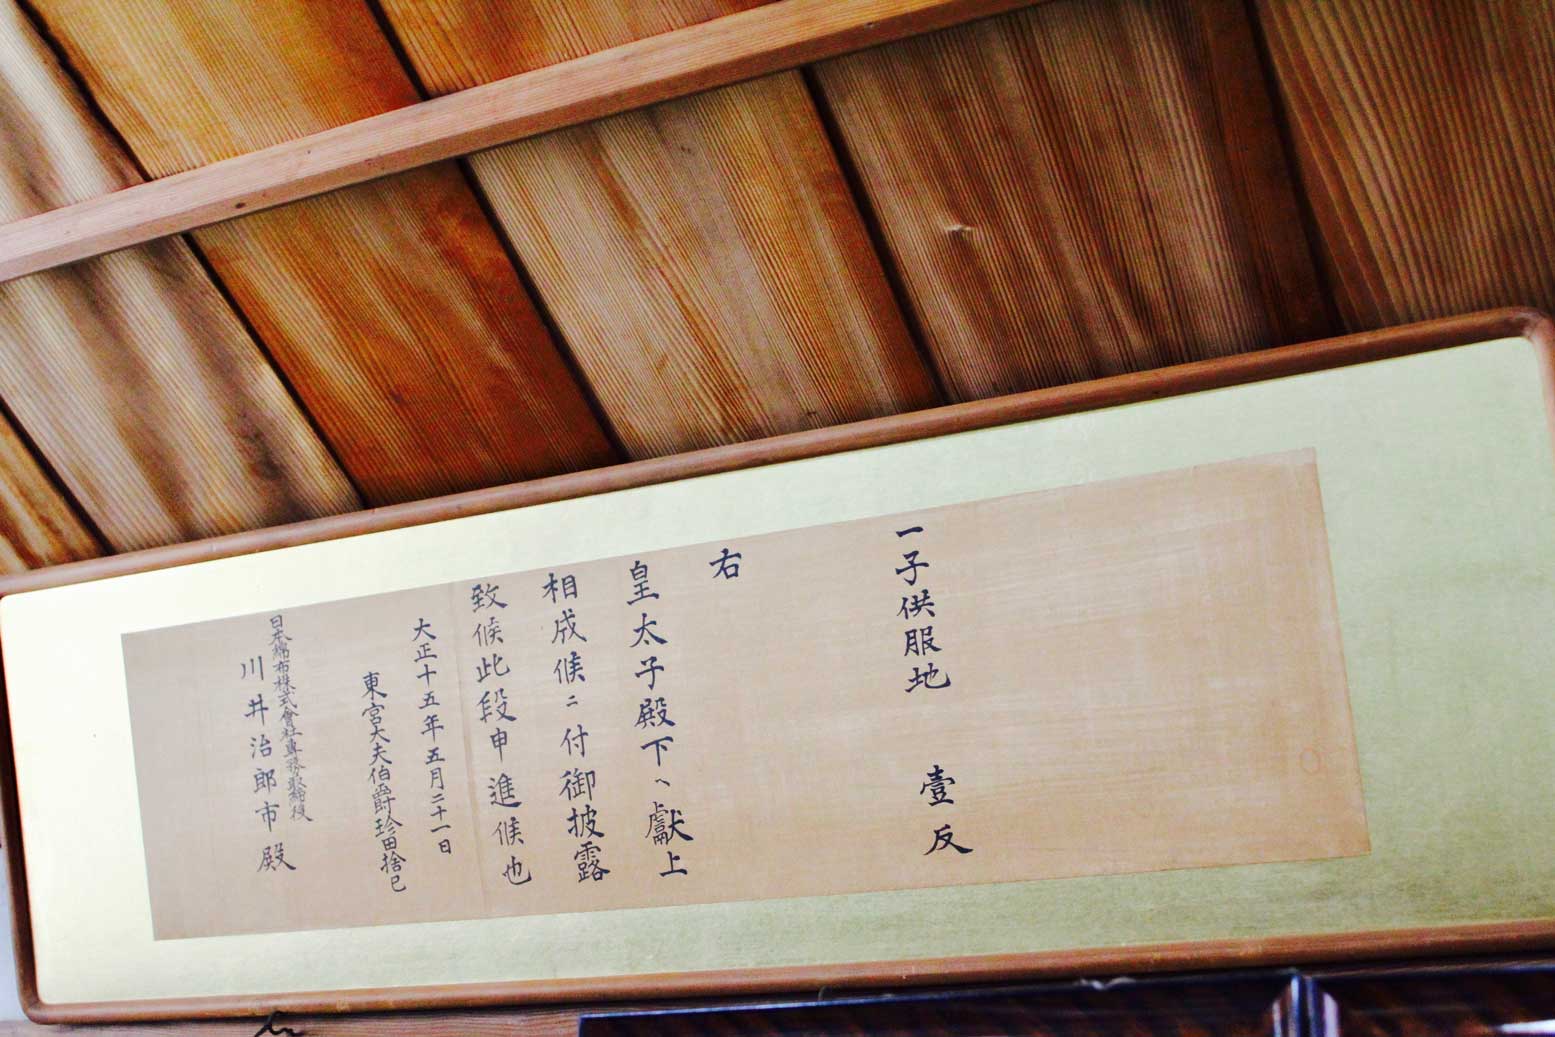 一子供服地　壹反
右
皇太子殿下ヘ獻上
相成候ニ付御披露
致候此段申進候也
大正十五年五月二十一日
東宮大夫伯爵珍田捨巳
日本綿布株式會社專務取締役
川井治郎市殿